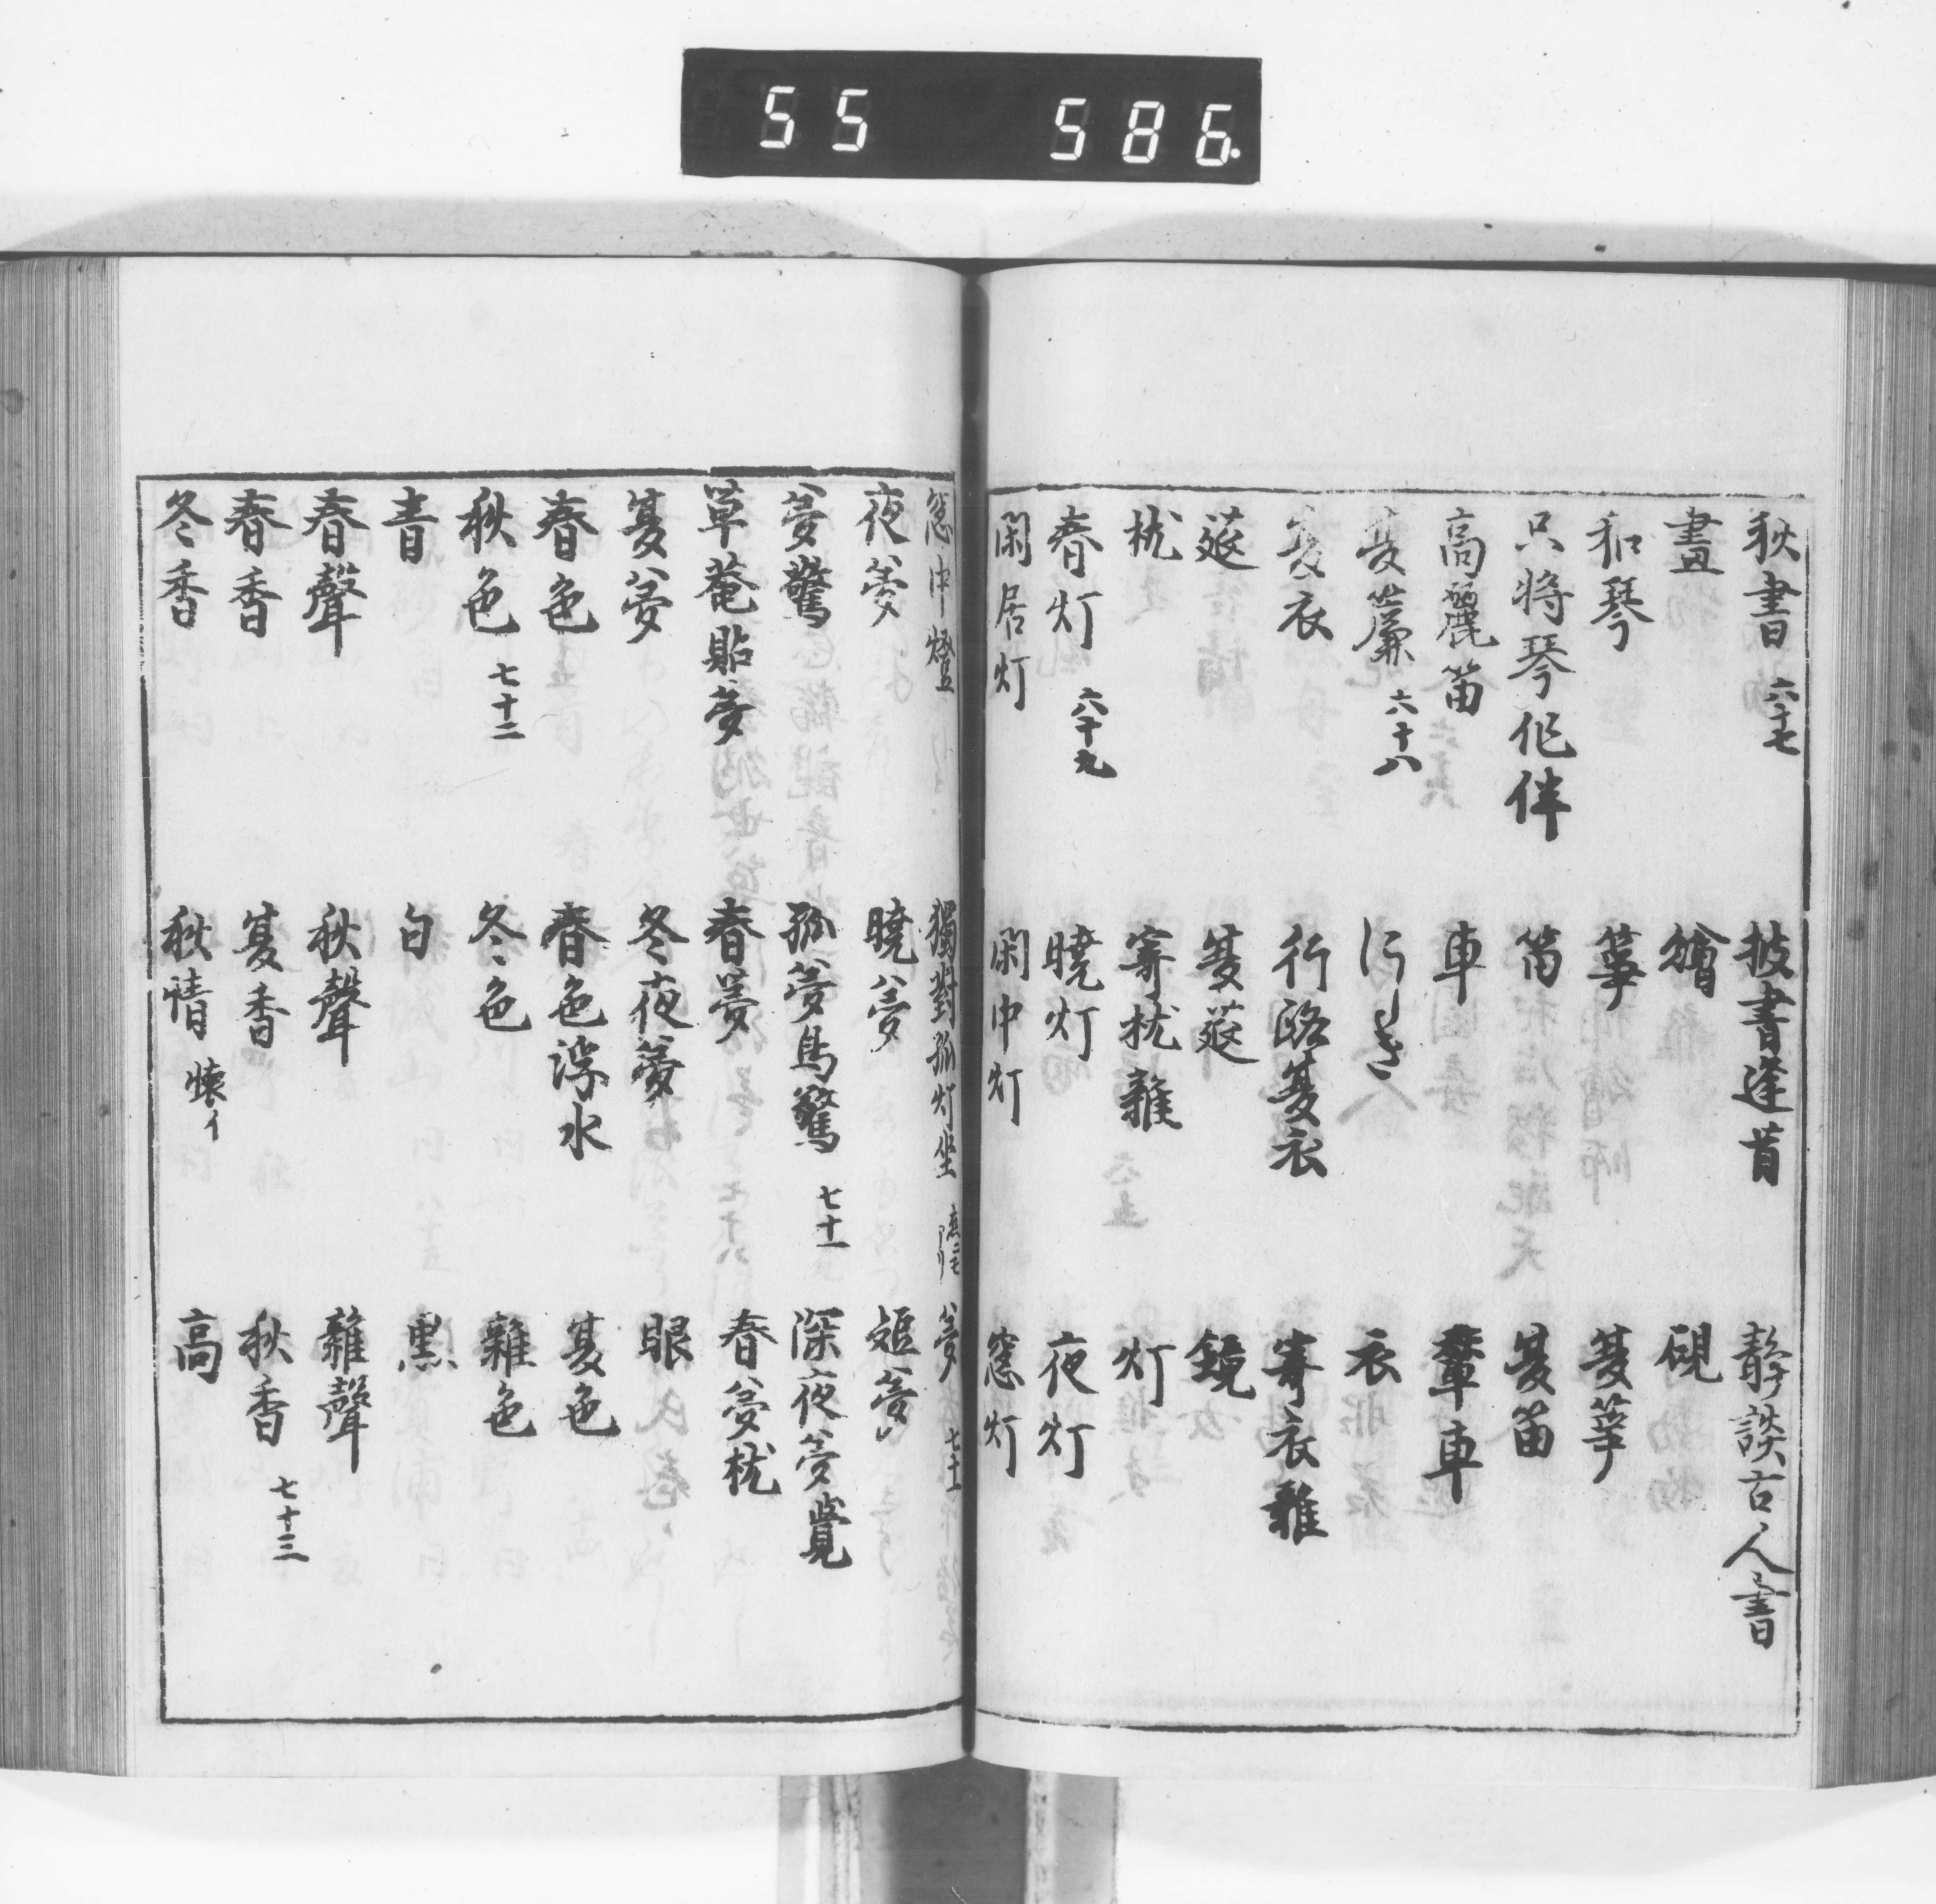 55 586.
秋書 六十七 披書逢昔 静談古人書
畫 繪 硯
和琴 箏 夏箏
只将琴作伴 笛 夏笛
高麗笛 車 輦車
夏簾 六十八 にしき 衣
夏衣 行路夏衣 寄衣雜
莚 夏莚 鏡
枕 寄枕雜 灯
春灯 六十九 暁灯 夜灯
閑居灯 閑中灯 窓灯
窓中燈 獨對孤灯坐 夢 七十
夜夢 暁夢 短夢
夢驚 孤夢易驚 七十一 深夜夢覺
草菴貼夢 春夢 春夢枕
夏夢 冬夜夢 眼
春色 春色浮水 夏色
秋色 七十二 冬色 雜色
青 白 黒
春聲 秋聲 雜聲
春香 夏香 秋香 七十三
冬香 秋情 懐イ 高